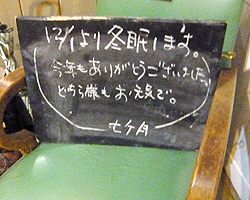 12/1より冬眠します。
今年もありがとうございました。
どちら様もお元気で。
七ケ月